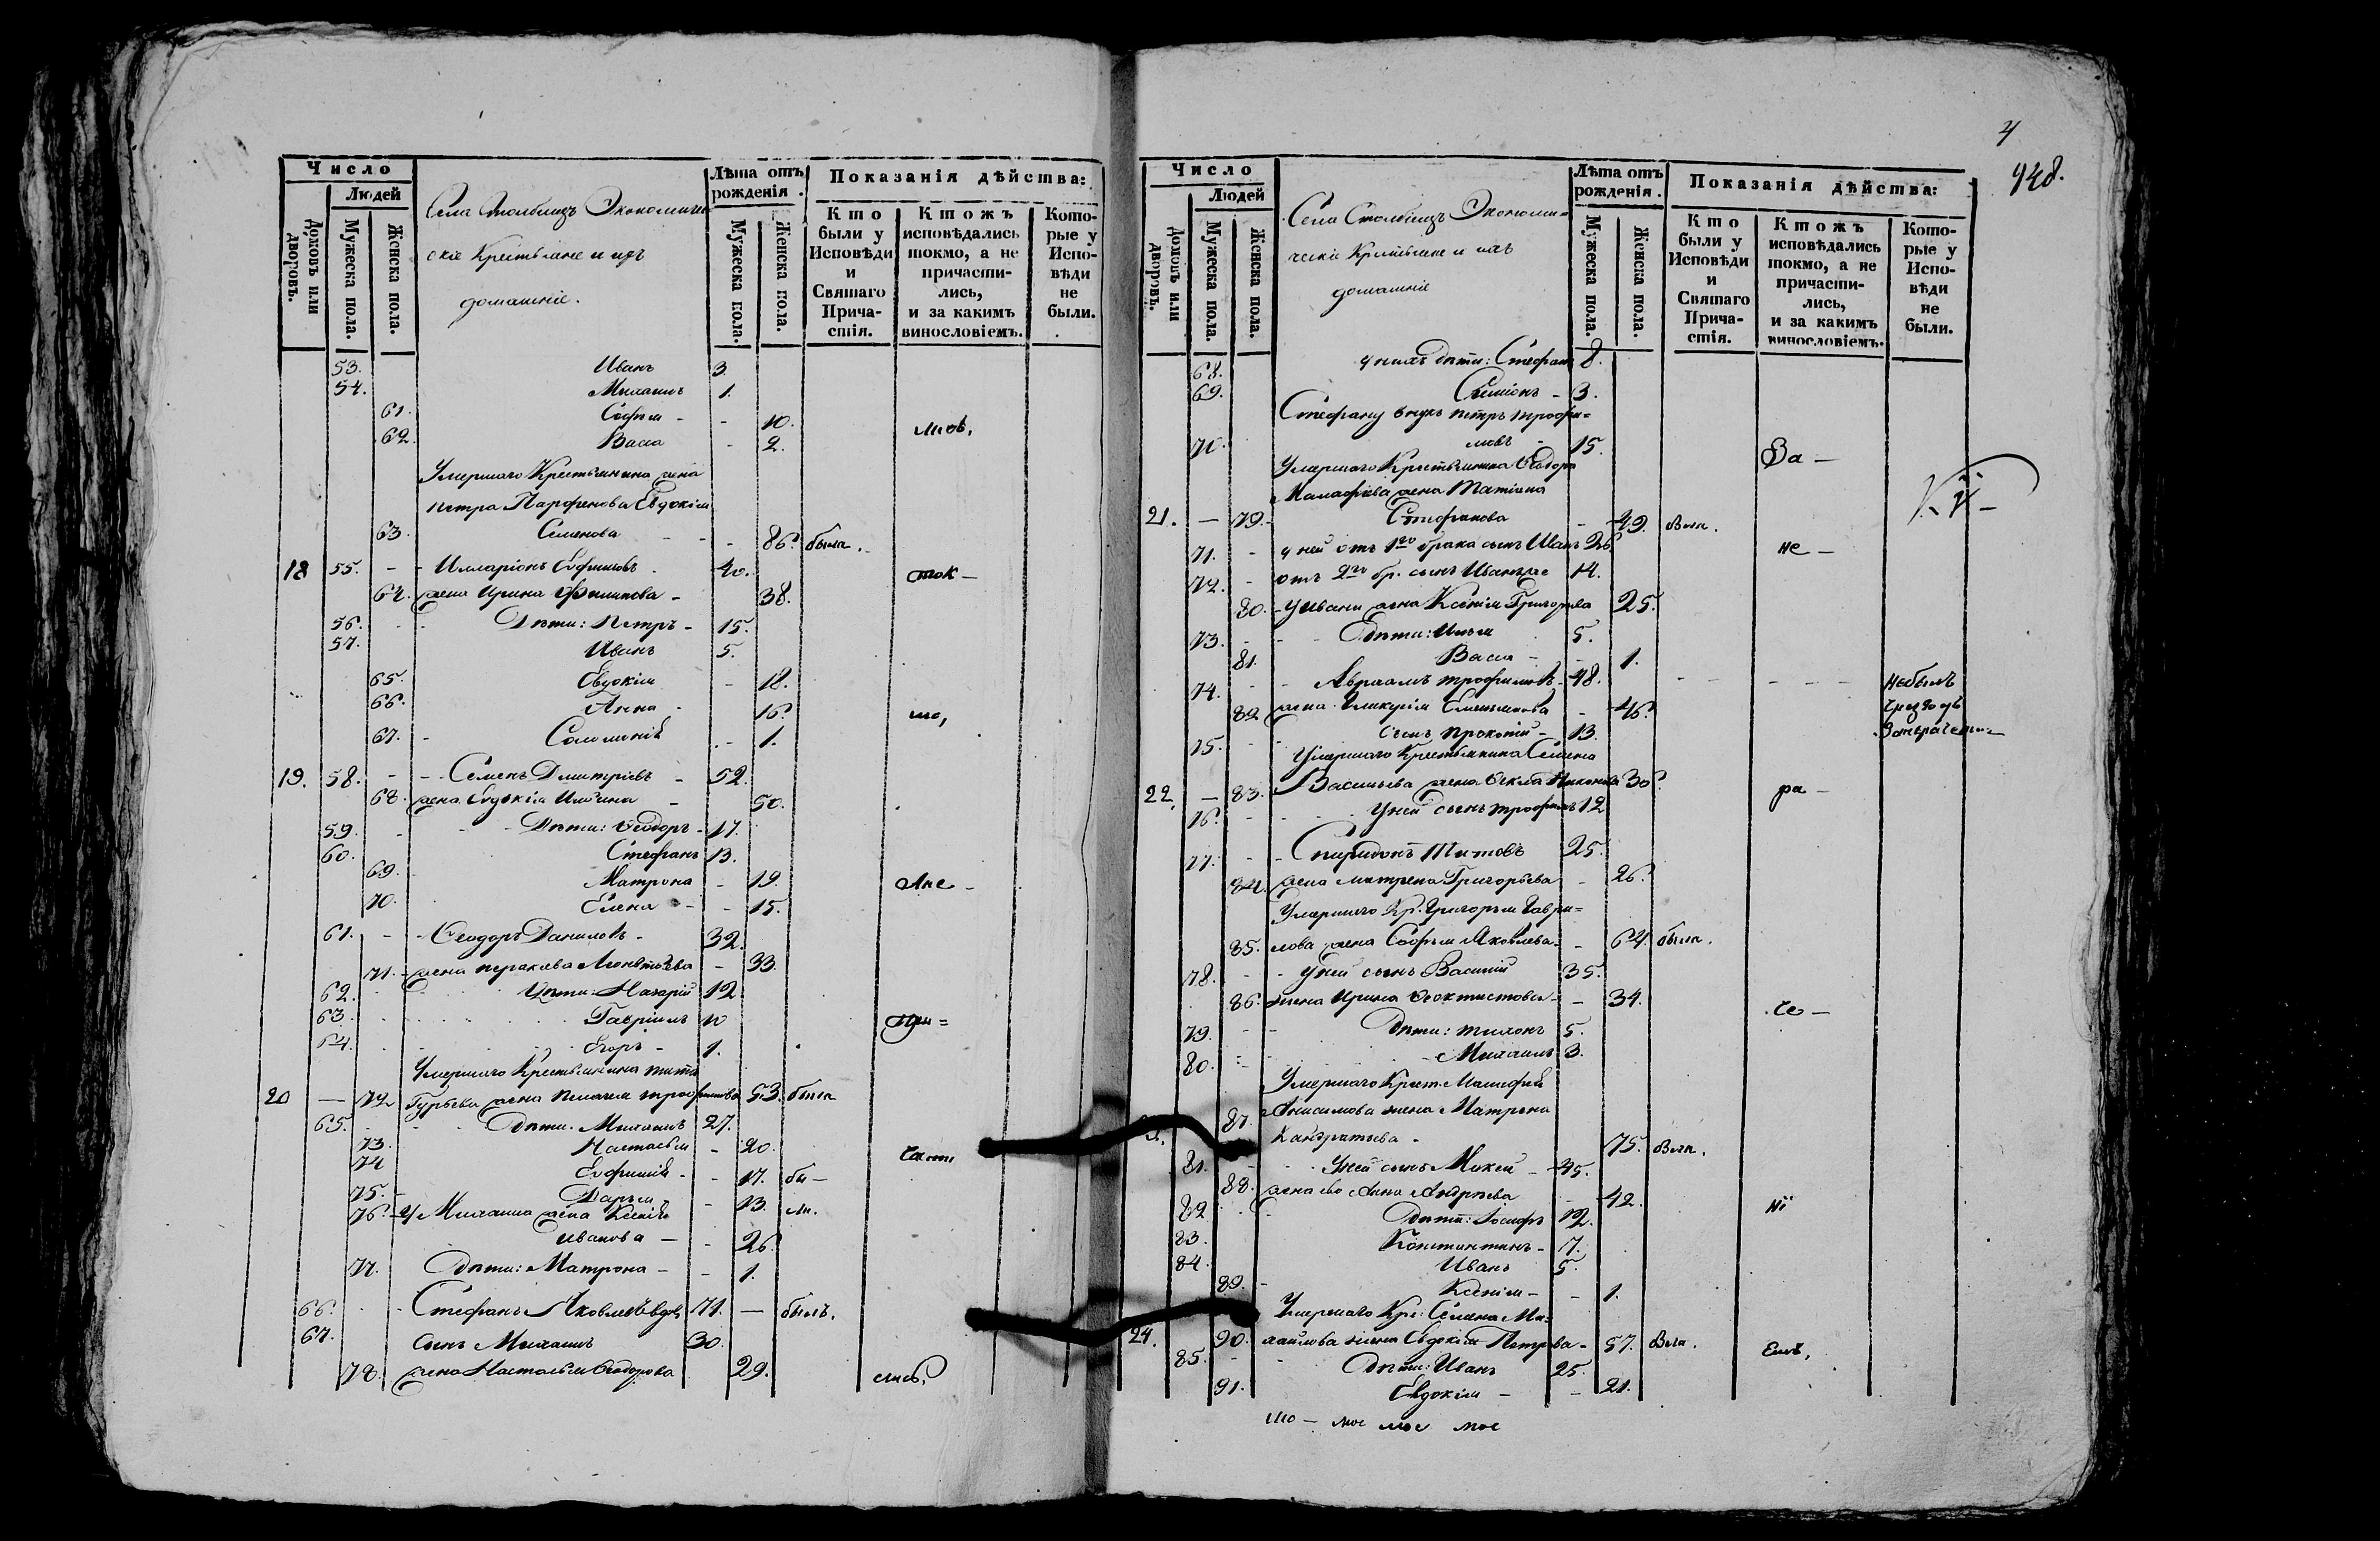 Число
Людей
Домовъ или дворовъ.
Мужеска пола.
Женска пола.
Села Столбищъ Экономиче
скіе Крестьяне и ихъ
домашніе.
Лѣта отъ рожденія.
Мужеска пола.
Женска пола.
Показанія дѣйства:
Кто были у Исповѣди и Святаго Причастія.
Ктожъ исповѣдались токмо, а не причастились, и за какимъ винословіемъ.
Которые у Исповѣди не были.
53. Иванъ 3.
54. Михаилъ 1.
61. Софья - - 10.
62. Васса - 2.
Умершаго Крестьянина жена
Петра Парфенова Евдокія
63. Семенова - - 86. была.
18 55. - - Илларіонъ Ефимовъ. 40. ток-
64. жена Ирина Филипова - 38.
56. Дѣти: Петръ - 15.
57. Иванъ 5.
65. Евдокія - 18.
66. Анна - 16. мо,
67. - Соломонія - 1.
19. 58. - - Семенъ Дмитріевъ - 52.
68. жена Евдокія Ильина - 50.
59. - Дѣти: Ѳеодоръ - 17.
60. Стефанъ 13.
69. Матрона - 19. Ане -
70. Елена - - 15.
61. - - Ѳеодоръ Даниловъ - 32.
71. - жена Параскева Леонтьева - 33.
62. Дѣти: Назарій 12
63. Гавріилъ 10 при =
64. Егоръ - 1.
Умершаго Крестьянина Тита
20 — 72 Гурьева жена Пелагея Трофимова 53. была
65. Дѣти: Михаилъ 27.
73. Настасья - 20. части
74 Евфимія - - 17. бы-
75. - Дарья - 13. ли.
76. - У Михаила жена Ксенія
Иванова — - 26.
77. Дѣти: Матрона - - 1.
66. - Стефанъ Яковлевъ вдов. 71. — былъ.
67. сынъ Михаилъ 30.
78. жена Настасья Ѳеодорова 29. лись,
4
948.
Число
Людей
Домовъ или дворовъ.
Мужеска пола.
Женска пола.
Села Столбищъ Экономи=
ческіе Крестьяне и ихъ
домашніе
Лѣта отъ рожденія.
Мужеска пола.
Женска пола.
Показанія дѣйства:
Кто были у Исповѣди и Святаго Причастія.
Ктожъ исповѣдались токмо, а не причастились, и за какимъ винословіемъ.
Которые у Исповѣди не были.
68. у нихъ дѣти: Стефанъ 8.
69. Симіонъ - 3.
Стефану внукъ Петръ Трофи=
70. мовъ - 15. За —
Умершаго Крестьянина Ѳеодора
Малафіева жена Татіана
21. — 79. - Стефанова - 49. была.
71. - у ней отъ 1го брака сынъ Иванъ 26. не —
72. - отъ 2го бр. сынъ Иванъ же 14.
80. - у Ивана жена Ксенія Григорьева 25.
73. - - дѣти: Илья 5.
81. Васса - - 1.
74. - - Авраамъ Трофимовъ - 48. - - - - небылъ
82 жена Гликерія Емельянова - 46.
75. - сынъ Прокопій - 13.
Умершаго Крестьянина Семена
22. — 83. Васильева жена Ѳекла Никонова 30. ра -
76. - - у ней сынъ Трофимъ 12
77. - - Спиридонъ Титовъ 25.
84. жена Матрена Григорьева - 26.
Умершаго Кр. Григорья Гаври=
85. лова жена Софья Яковлева - - 64. была.
78. - - у ней сынъ Василій 35.
86. жена Ирина Ѳеоктистова - - 34. че —
79. - - дѣти: Тихонъ 5.
80. - Михаилъ 3.
Умершаго Крест. Малафія
87. Анисимова жена Матрена
Кандратьева - 75. была.
81. - у ней сынъ Мокей - 45.
88. жена его Анна Андреева - 42. ні
82 - дѣти: Іосифъ 12.
83. Константинъ - 7.
84. Иванъ 5.
89. - Ксенія - - 1.
Умершаго Кре: Семена Ми=
24. 90. хайлова жена Евдокія Петрова - 57. была. емъ,
85. - - дѣти: Иванъ 25.
91. Евдокія - - 21.